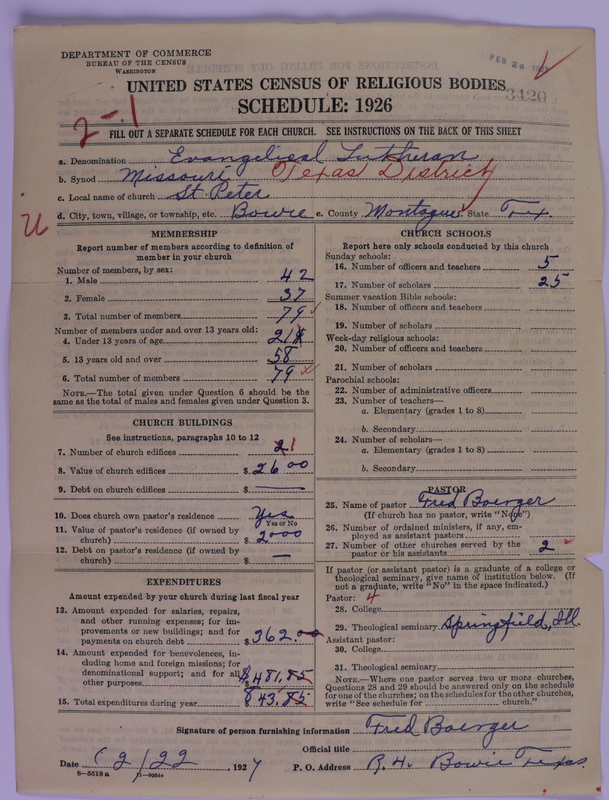 DEPARTMENT OF COMMERCE
BUREAU OF THE CENSUS
WASHINGTON
FEB 26 1927
UNITED STATES CENSUS OF RELIGIOUS BODIES
3420
SCHEDULE: 1926
2-1
FILL OUT A SEPARATE SCHEDULE FOR EACH CHURCH. SEE INSTRUCTIONS ON THE BACK OF THIS SHEET
a. Denomination Evangelical Lutheran
b. Synod Missouri Texas District
c. Local name of church St. Peter
d. City, town, village, or township, etc. Bowie e. County Montague State Tex.
U
MEMBERSHIP
Report number of members according to definition of
member in your church
Number of members, by sex:
1. Male 42
2. Female 37
3. Total number of members 79
Number of members under and over 13 years old:
4. Under 13 years of age 21
5. 13 years old and over 58
6. Total number of members 79
NOTE.—The total given under Question 6 should be the
same as the total of males and females given under Question 3.
CHURCH BUILDINGS
See instructions, paragraphs 10 to 12
7. Number of church edifices 1
8. Value of church edifices $ 2600
9. Debt on church edifices $ —
10. Does church own pastor's residence Yes
Yes or No
11. Value of pastor's residence (if owned by
church) $ 2000
12. Debt on pastor's residence (if owned by
church) $ —
EXPENDITURES
Amount expended by your church during last fiscal year
13. Amount expended for salaries, repairs,
and other running expenses; for im-
provements or new buildings; and for
payments on church debt $ 362.00
14. Amount expended for benevolences, in-
cluding home and foreign missions; for
denominational support; and for all
other purposes $ 481.85
15. Total expenditures during year 843.85
CHURCH SCHOOLS
Report here only schools conducted by this church
Sunday schools:
16. Number of officers and teachers 5
17. Number of scholars 25
Summer vacation Bible schools:
18. Number of officers and teachers
19. Number of scholars
Week-day religious schools:
20. Number of officers and teachers
21. Number of scholars
Parochial schools:
22. Number of administrative officers
23. Number of teachers—
a. Elementary (grades 1 to 8)
b. Secondary
24. Number of scholars—
a. Elementary (grades 1 to 8)
b. Secondary
PASTOR
25. Name of pastor Fred Boerger
(If church has no pastor, write "None")
26. Number of ordained ministers, if any, em-
ployed as assistant pastors
27. Number of other churches served by the
pastor or his assistants 2
If pastor (or assistant pastor) is a graduate of a college or
theological seminary, give name of institution below. (If
not a graduate, write "No" in the space indicated.)
Pastor: 4
28. College
29. Theological seminary Springfield, Ill.
Assistant pastor:
30. College
31. Theological seminary
NOTE.—Where one pastor serves two or more churches,
Questions 28 and 29 should be answered only on the schedule
for one of the churches; on the schedules for the other churches,
write "See schedule for church."
Signature of person furnishing information Fred Boerger
Official title
Date 2/22, 1927 P. O. Address R.4. Bowie Texas.
8—5518 a